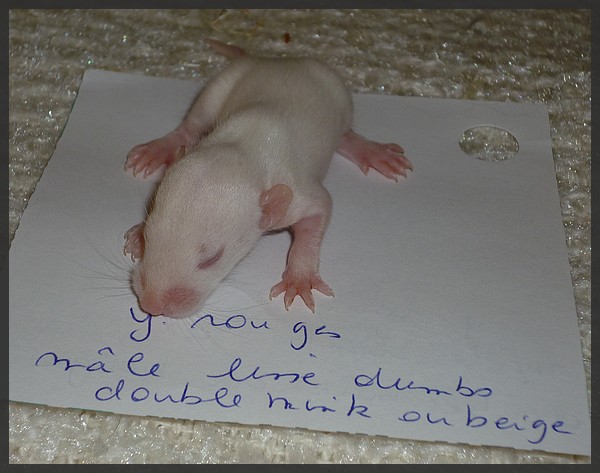 y. rouges
mâle lisse dumbo
double mink ou beige